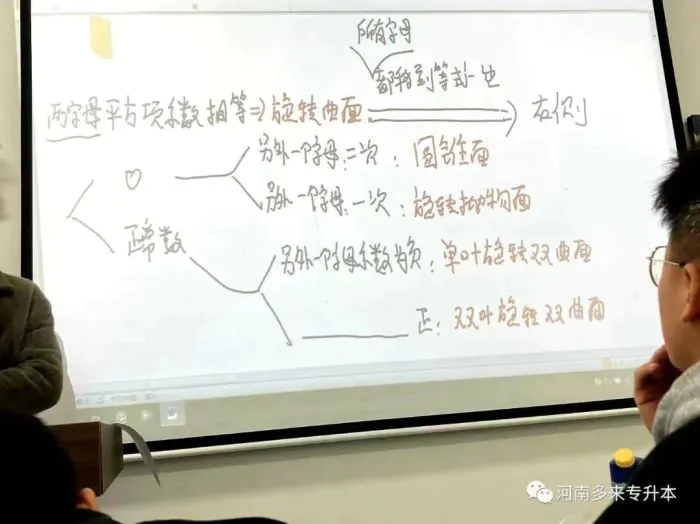 所有字母
都移到等式一边
两字母平方项系数相等⇒旋转曲面 ⇒ 右侧
0
另外一个字母:二次:圆锥面
另外一个字母:一次:旋转抛物面
正常数
另外一个字母系数为负:单叶旋转双曲面
正:双叶旋转双曲面
河南多来专升本